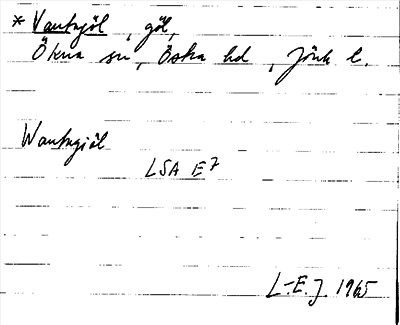 * Vantagöl, göl,
Ökna sn, Östra hd, Jönk l.
Wantagiöl
LSA E7
L-E.J. 1965